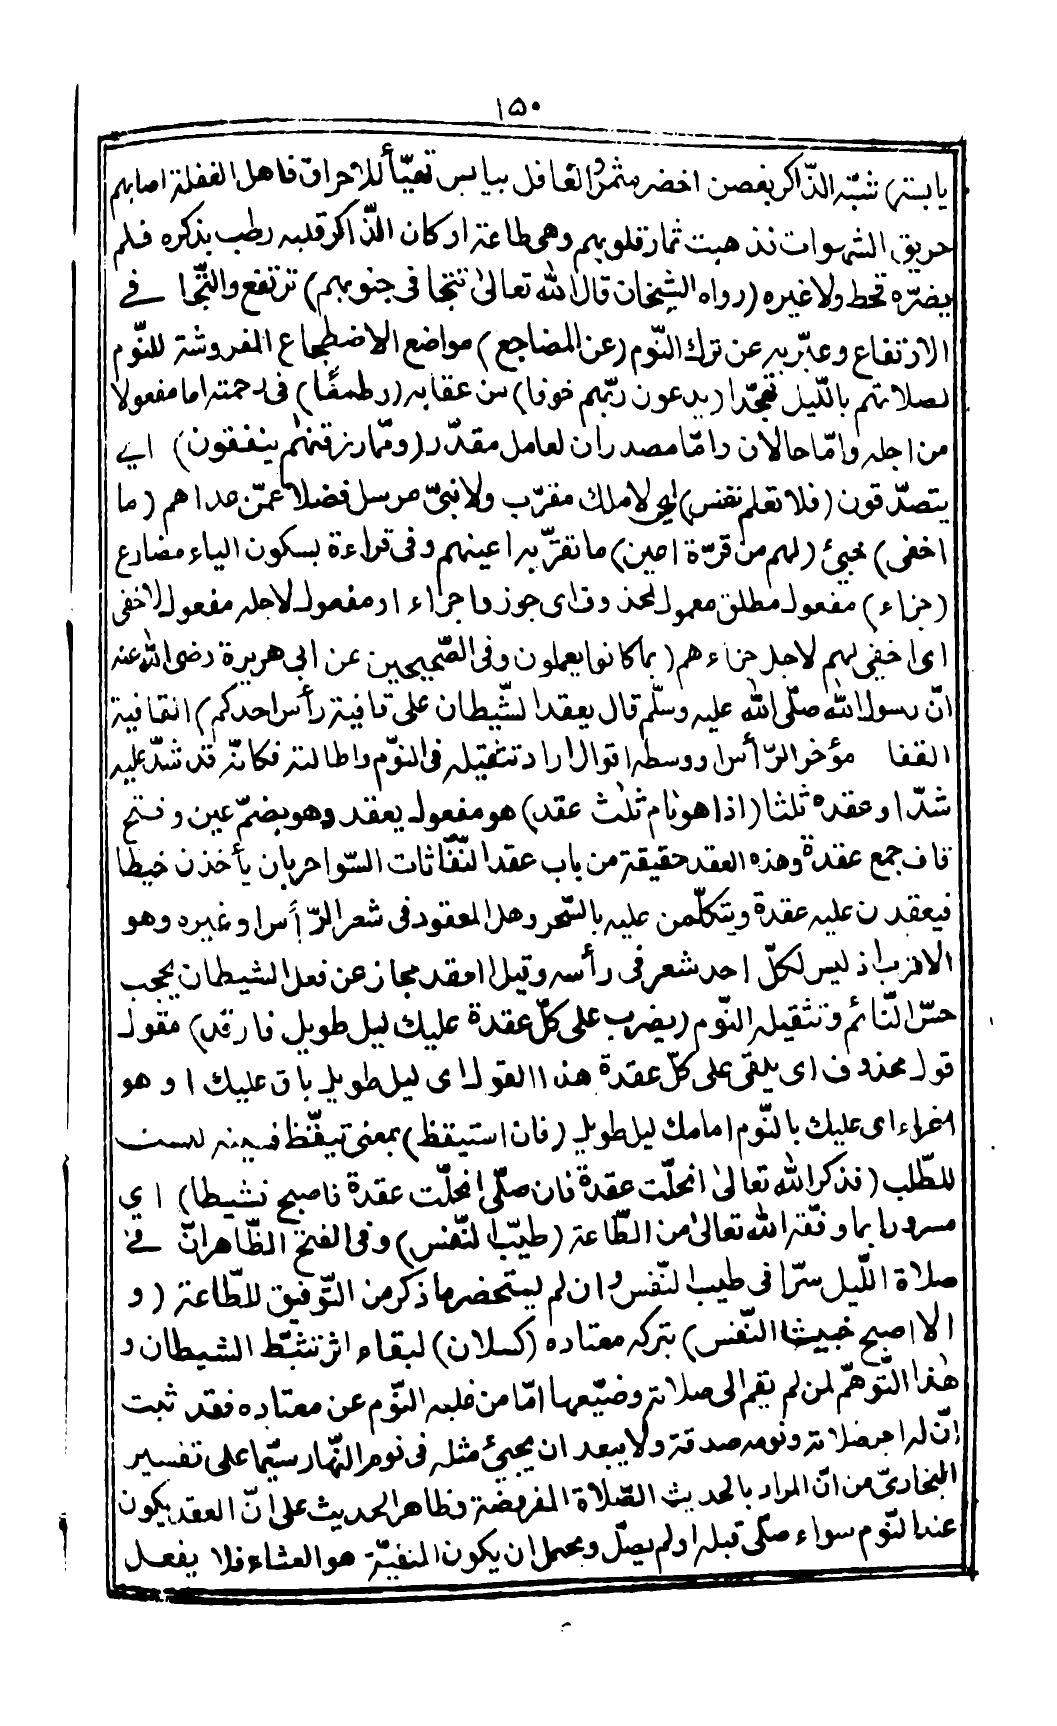 ١٥٠
يابسة) شبّه الذّاكر بغصن اخضر مثمر والغافل بيابس تهيّأ للاحراق فاهل الغفلة اصابهم
حريق الشهوات فذهبت ثمار قلوبهم وهى طاعة اركان الذّاكر قلبه رطب بذكره فلم
يضرّه قحط ولا غيره (رواه الشيخان قال الله تعالىٰ تتجافى جنوبهم) ترتفع والتّجا فے
الارتفاع وعبّر به عن ترك النّوم (عن المضاجع) مواضع الاضطجاع المفروشة للنّوم
لصلاتهم باللّيل تهجّدا (يدعون ربّهم خوفا) من عقابه (وطمعًا) فى رحمته اما مفعولا
من اجله وامّا حالان وامّا مصدران لعامل مقدّر (وممّا رزقنٰهم ينفقون) اے
يتصدّقون (فلا تعلم نفس) اى لا ملك مقرّب ولا نبىّ مرسل فضلا عمّن عداهم (ما
اخفى) خبئ (لهم من قرّة اعين) ما تقرّ به اعينهم وفى قراءة بسكون الياء مضارع
(جزاء) مفعول مطلق معمول لمحذوف اى جوزوا جزاء او مفعول لاجله مفعول لاخفى
اى اخفى لهم لاجل جزاءهم (بما كانوا يعملون وفى الصّحيحين عن ابى هريرة رضى الله عنه
انّ رسول الله صلّى الله عليه وسلّم قال يعقد الشّيطان على قافية رأس احدكم) القافية
القفا مؤخر الرّأس او وسطه اقوال اراد تثقيله فى النّوم واطالته فكانّه قد شدّ عليه
شدّا وعقده ثلثا (اذا هو نام ثلٰث عقد) هو مفعول يعقد وهو بضمّ عين وفتح
قاف جمع عقدة وهذه العقد حقيقة من باب عقد النّفّاثات السّواحر بان يأخذن خيطا
فيعقدن عليه عقدة ويتكلّمن عليه بالسّحر وهل المعقود فى شعر الرّأس او غيره وهو
الاقرب اذ ليس لكلّ احد شعر فى رأسه وقيل العقد مجاز عن فعل الشيطان يحجب
حسّ النّائم وتثقيله النّوم (يضرب على كلّ عقدة عليك ليل طويل فارقد) مقول
قول محذوف اى يلقى على كلّ عقدة هذا القول اى ليل طويل باق عليك او هو
اغراء اى عليك بالنّوم امامك ليل طويل (فان استيقظ) بمعنى تيقّظ فسينه ليست
للطّلب (فذكر الله تعالىٰ انحلّت عقدة فان صلّى انحلّت عقدة فاصبح نشيطا) اي
مسرورا بما وفّقه الله تعالىٰ من الطّاعة (طيّب النّفس) وفى الفتح الظّاهر انّ فے
صلاة اللّيل سرّا فى طيب النّفس وان لم يستحضر ما ذكر من التّوفيق للطّاعة (و
الا اصبح خبيث النّفس) بتركه معتاده (كسلان) لبقاء اثر تثبّط الشيطان و
هٰذا التّوهّم لمن لم يقم الى صلاته وضيّعها امّا من غلبه النّوم عن معتاده فقد ثبت
انّ له اجر صلاته ونومه صدقة ولا يبعد ان يجئ مثله فى نوم النّهار سيّما على تفسير
البخارىّ من انّ المراد بالحديث الصّلاة المفروضة وظاهر الحديث على انّ العقد يكون
عند النّوم سواء صلّى قبله او لم يصلّ ويحمل ان يكون المنفيّة هو العشاء فلا يفعل